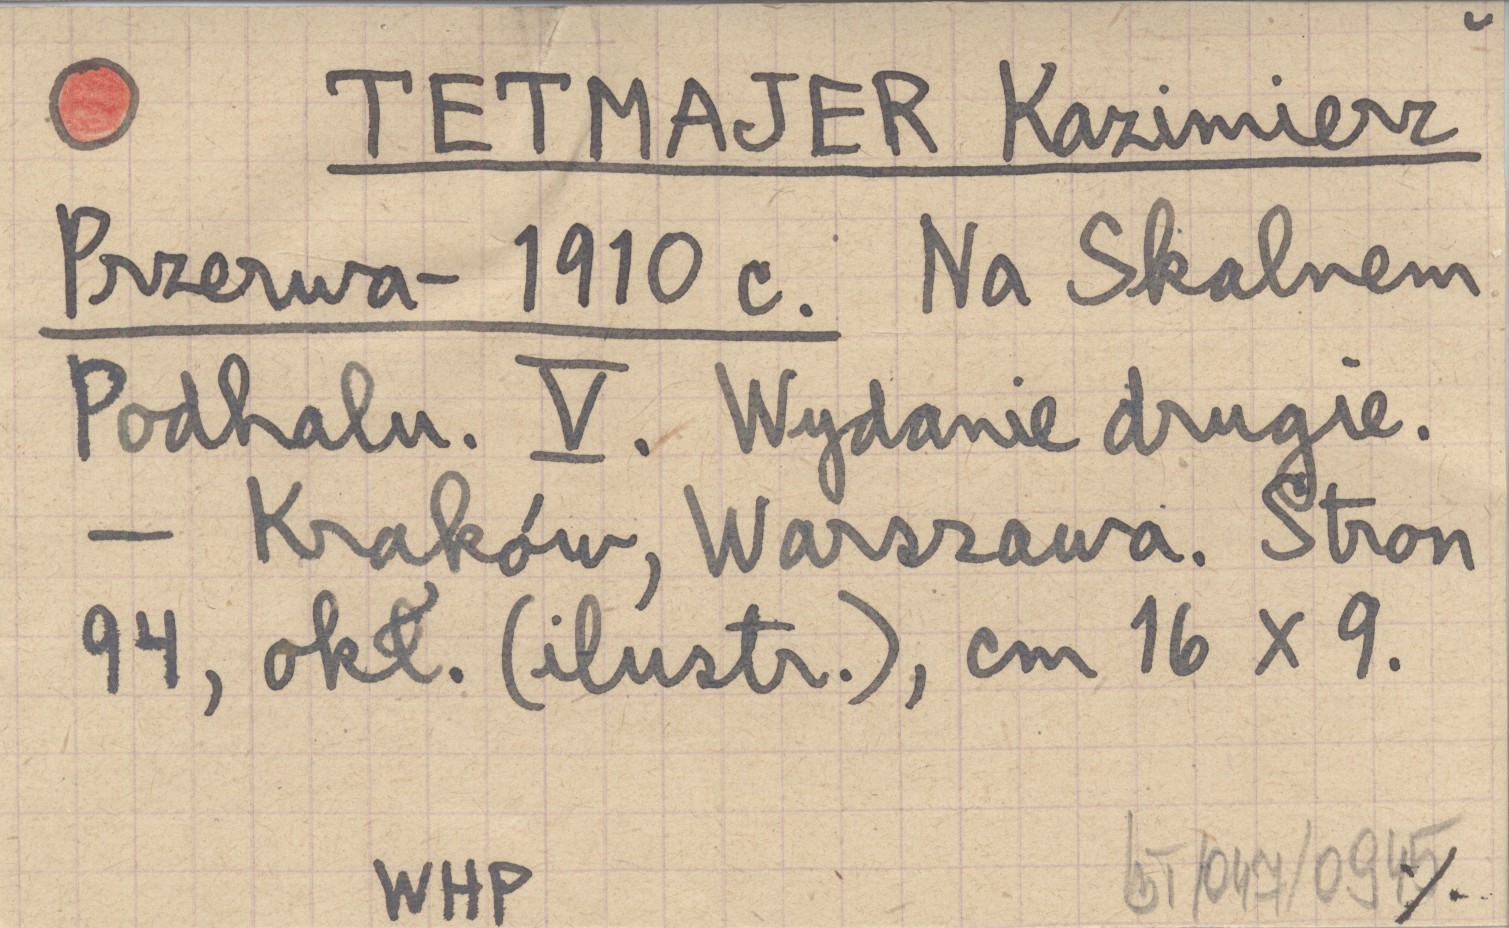 TETMAJER Kazimierz
Przerwa- 1910 c. Na Skalnem
Podhalu. V. Wydanie drugie.
— Kraków, Warszawa. Stron
94, okł. (ilustr.), cm 16 x 9.
WHP
/047/0945